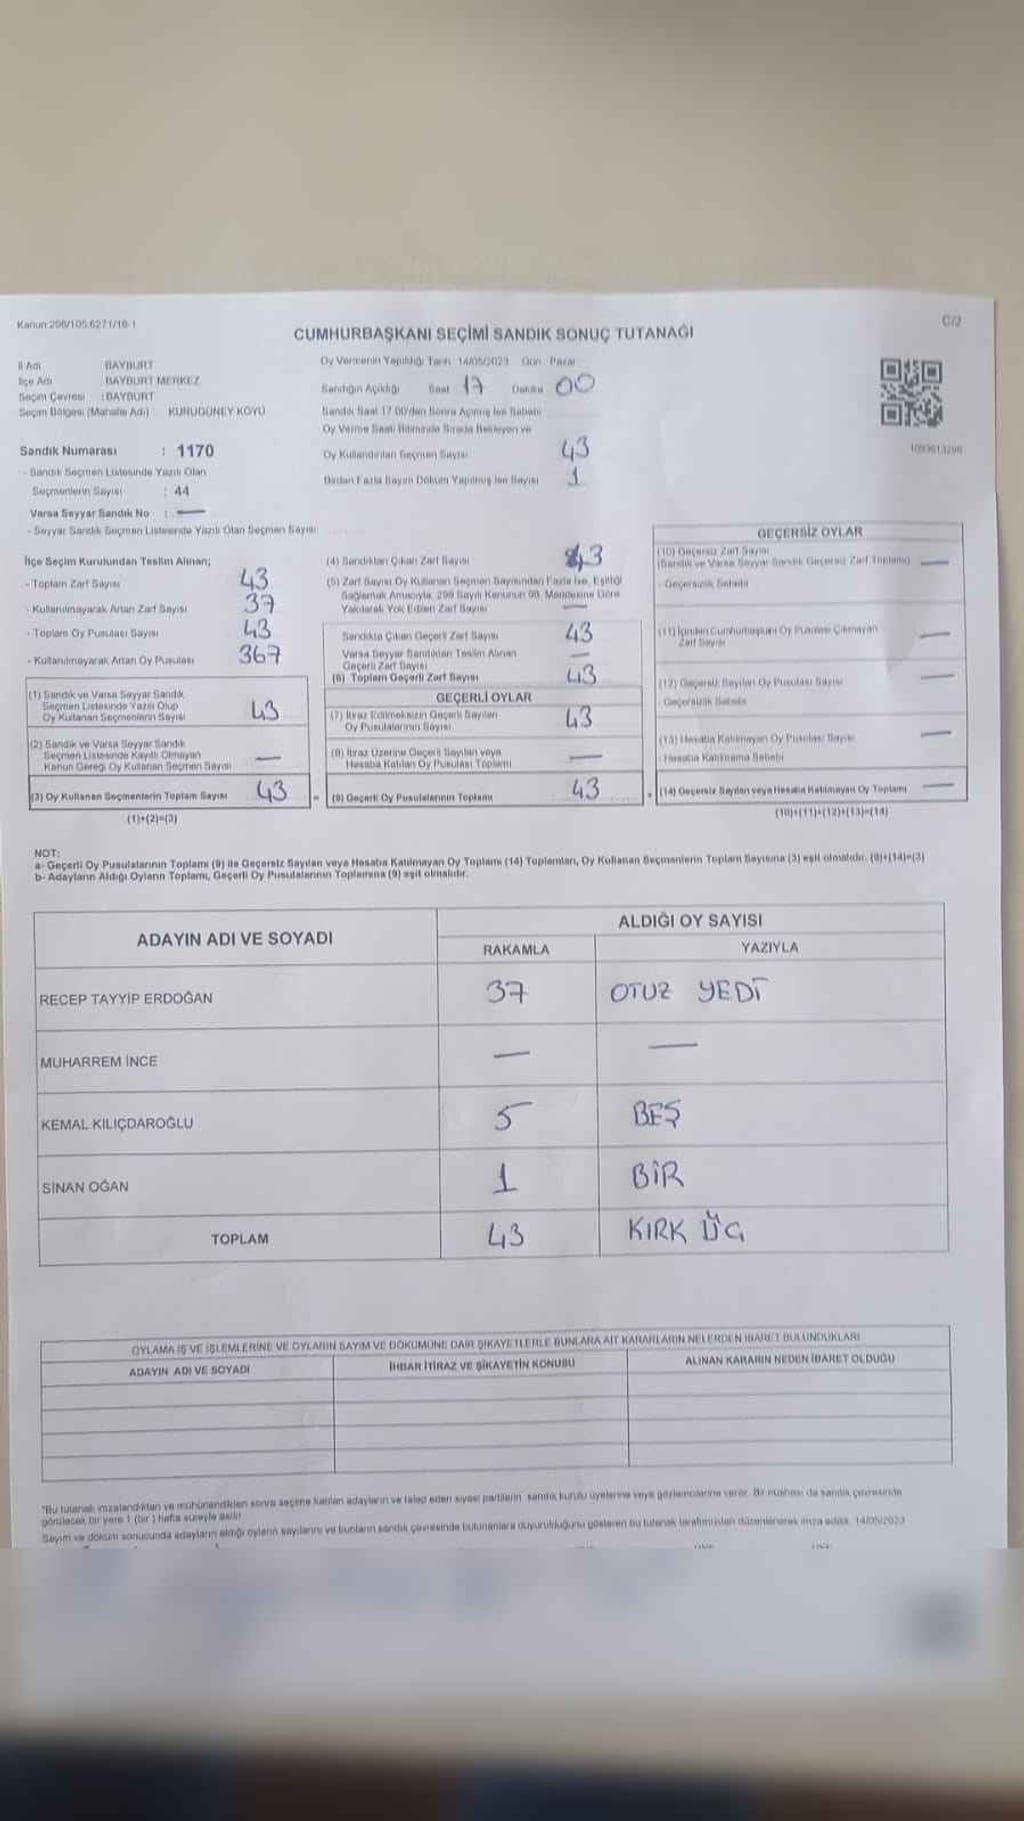 Kanun:298/105.6271/16-1
C/2
CUMHURBAŞKANI SEÇİMİ SANDIK SONUÇ TUTANAĞI
İl Adı BAYBURT
İlçe Adı BAYBURT MERKEZ
Seçim Çevresi : BAYBURT
Seçim Bölgesi (Mahalle Adı) KURUGÜNEY KÖYÜ
Oy Vermenin Yapıldığı Tarih 14/05/2023 Gün Pazar
Sandığın Açıldığı Saat 17 Dakika 00
Sandık Saat 17.00'den Sonra Açılmış İse Sebebi
Oy Verme Saati Bitiminde Sırada Bekleyen ve
Oy Kullandırılan Seçmen Sayısı 43
Birden Fazla Sayım Döküm Yapılmış İse Sayısı 1
Sandık Numarası : 1170
- Sandık Seçmen Listesinde Yazılı Olan
Seçmenlerin Sayısı : 44
Varsa Seyyar Sandık No : —
- Seyyar Sandık Seçmen Listesinde Yazılı Olan Seçmen Sayısı
İlçe Seçim Kurulundan Teslim Alınan;
- Toplam Zarf Sayısı 43
- Kullanılmayarak Artan Zarf Sayısı 37
- Toplam Oy Pusulası Sayısı 43
- Kullanılmayarak Artan Oy Pusulası 367
(1) Sandık ve Varsa Seyyar Sandık
Seçmen Listesinde Yazılı Olup
Oy Kullanan Seçmenlerin Sayısı 43
(2) Sandık ve Varsa Seyyar Sandık
Seçmen Listesinde Kayıtlı Olmayan
Kanun Gereği Oy Kullanan Seçmen Sayısı —
(3) Oy Kullanan Seçmenlerin Toplam Sayısı 43
(1)+(2)=(3)
(4) Sandıktan Çıkan Zarf Sayısı 43
(5) Zarf Sayısı Oy Kullanan Seçmen Sayısından Fazla İse, Eşitliği
Sağlamak Amacıyla, 298 Sayılı Kanunun 98. Maddesine Göre
Yakılarak Yok Edilen Zarf Sayısı —
Sandıkta Çıkan Geçerli Zarf Sayısı 43
Varsa Seyyar Sandıktan Teslim Alınan
Geçerli Zarf Sayısı —
(6) Toplam Geçerli Zarf Sayısı 43
GEÇERLİ OYLAR
(7) İtiraz Edilmeksizin Geçerli Sayılan
Oy Pusulalarının Sayısı 43
(8) İtiraz Üzerine Geçerli Sayılan veya
Hesaba Katılan Oy Pusulası Toplamı —
= (9) Geçerli Oy Pusulalarının Toplamı 43
GEÇERSİZ OYLAR
(10) Geçersiz Zarf Sayısı
(Sandık ve Varsa Seyyar Sandık Geçersiz Zarf Toplamı) —
- Geçersizlik Sebebi
(11) İçinden Cumhurbaşkanı Oy Pusulası Çıkmayan
Zarf Sayısı —
(12) Geçersiz Sayılan Oy Pusulası Sayısı —
- Geçersizlik Sebebi
(13) Hesaba Katılmayan Oy Pusulası Sayısı —
- Hesaba Katılmama Sebebi
+ (14) Geçersiz Sayılan veya Hesaba Katılmayan Oy Toplamı —
(10)+(11)+(12)+(13)=(14)
NOT:
a- Geçerli Oy Pusulalarının Toplamı (9) ile Geçersiz Sayılan veya Hesaba Katılmayan Oy Toplamı (14) Toplamları, Oy Kullanan Seçmenlerin Toplam Sayısına (3) eşit olmalıdır. (9)+(14)=(3)
b- Adayların Aldığı Oyların Toplamı, Geçerli Oy Pusulalarının Toplamına (9) eşit olmalıdır.
ADAYIN ADI VE SOYADI ALDIĞI OY SAYISI
RAKAMLA YAZIYLA
RECEP TAYYİP ERDOĞAN 37 OTUZ YEDİ
MUHARREM İNCE — —
KEMAL KILIÇDAROĞLU 5 BEŞ
SİNAN OĞAN 1 BİR
TOPLAM 43 KIRK ÜÇ
OYLAMA İŞ VE İŞLEMLERİNE VE OYLARIN SAYIM VE DÖKÜMÜNE DAİR ŞİKAYETLERLE BUNLARA AİT KARARLARIN NELERDEN İBARET BULUNDUKLARI
ADAYIN ADI VE SOYADI İHBAR İTİRAZ VE ŞİKAYETİN KONUSU ALINAN KARARIN NEDEN İBARET OLDUĞU
"Bu tutanak imzalandıktan ve mühürlendikten sonra seçime katılan adayların ve talep eden siyasi partilerin sandık kurulu üyelerine veya gözlemcilerine verilir. Bir nüshası da sandık çevresinde
görülecek bir yere 1 (bir) hafta süreyle asılır.
Sayım ve döküm sonucunda adayların aldığı oyların sayılarını ve bunların sandık çevresinde bulunanlara duyurulduğunu gösteren bu tutanak tarafımızdan düzenlenerek imza edildi. 14/05/2023